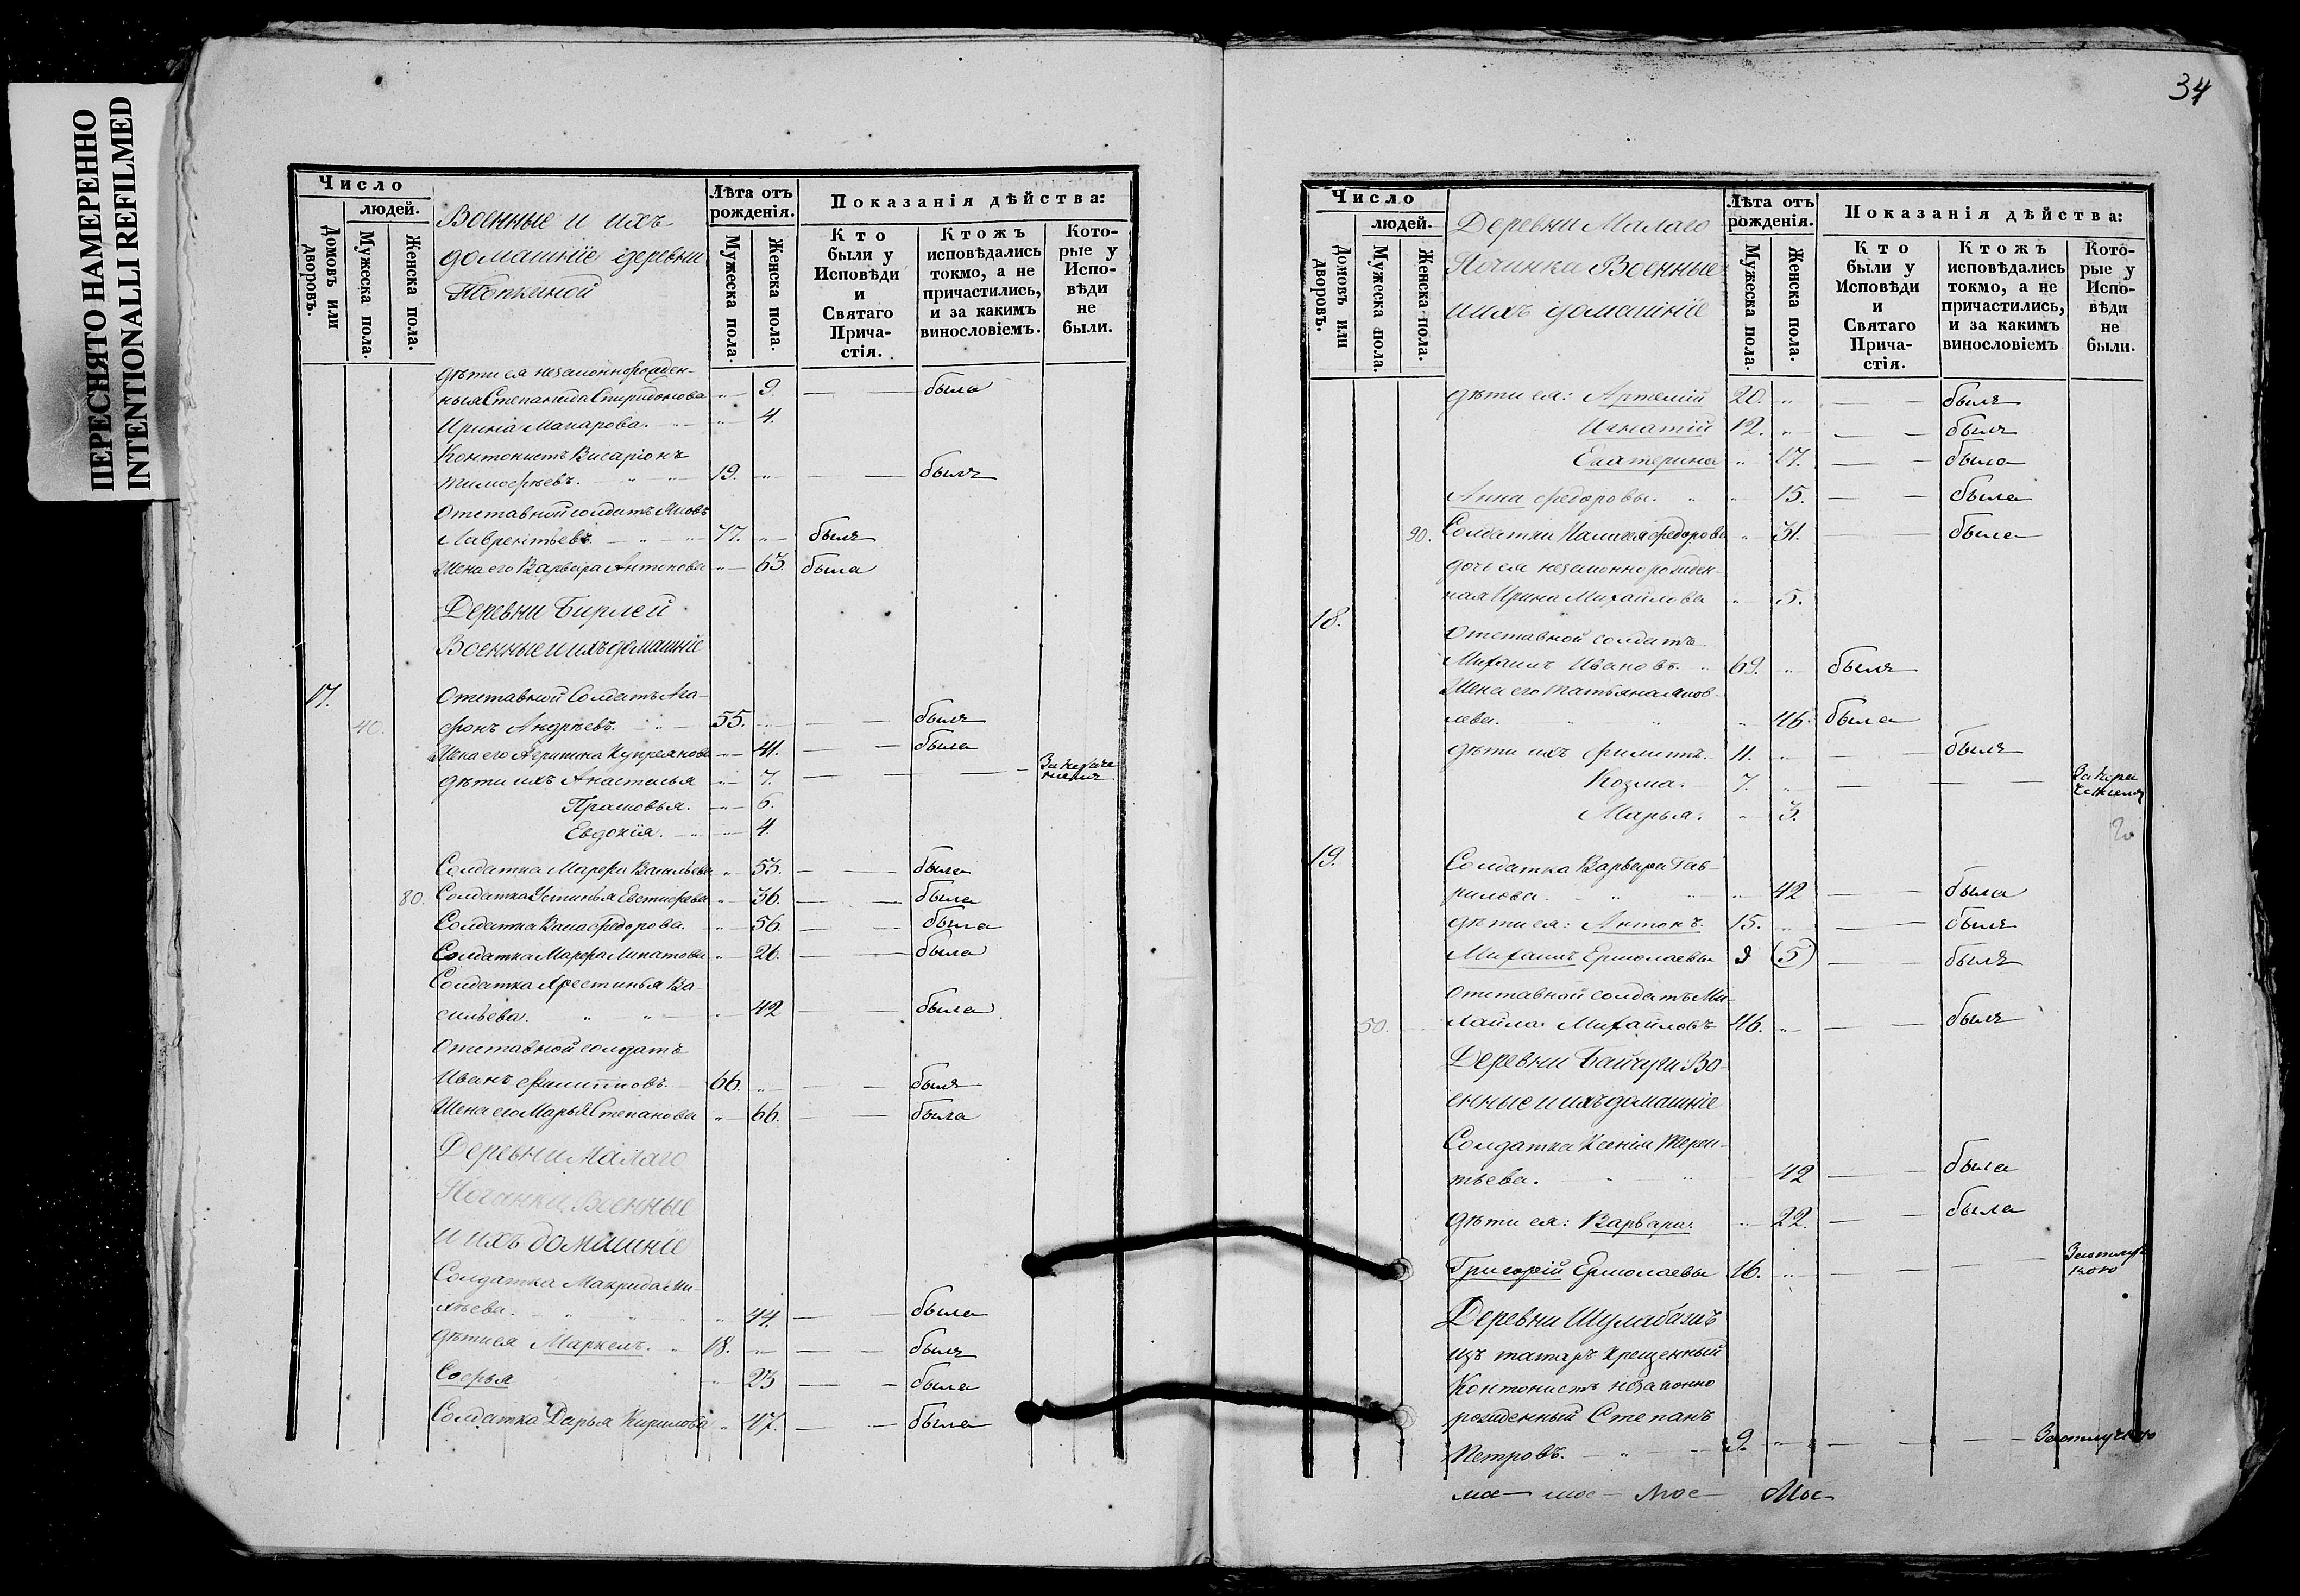 ПЕРЕСНЯТО НАМЕРЕННО
INTENTIONALLI REFILMED
Число
людей.
Домовъ или дворовъ.
Мужеска пола.
Женска пола.
Военные и ихъ
домашніе деревни
Топкиной
Лѣта отъ рожденія.
Мужеска пола.
Женска пола.
Показанія дѣйства:
Кто были у Исповѣди и Святаго Прича-стія.
Ктожъ исповѣдались токмо, а не причастились, и за какимъ винословіемъ.
Кото-рые у Испо-вѣди не были.
дѣти ея незаконнорожден-
ныя Степанида Спиридонова " 9. была
Ирина Макарова. " 4.
Кантонистъ Висаріонъ
Тимофѣевъ. 19. " былъ
Отставной солдатъ Яковъ
Лаврентьевъ 77. " былъ
Жена его Варвара Антонова " 65. была
Деревни Бирлей
Военные и ихъ домашніе
17. Отставной Солдатъ Ага-
40. фонъ Андрѣевъ. 55. " былъ
Жена его Агрипина Купреянова " 41. была
дѣти ихъ Анастасья " 7.
Прасковья. " 6.
Евдокія. " 4.
Солдатка Марфа Васильева " 53. была
80. Солдатка Устинья Евстифѣева " 36. была
Солдатка Васса Федорова. " 56. была
Солдатка Марфа Липатова " 26. была
Солдатка Хрестинья Ва-
сильева. " 42 была
Отставной солдатъ
Иванъ Филипповъ. 66. " былъ
Жена его Марья Степанова " 66. была
Деревни Малаго
Починка Военные
и ихъ домашніе
Солдатка Макрида Ми-
хѣева. " 44. была
дѣти ея Маркелъ. 18. " былъ
Софья " 23 была
Солдатка Дарья Кирилова " 47. была
34
Число
людей.
Домовъ или дворовъ.
Мужеска пола.
Женска пола.
Деревни Малаго
Починка Военные
и ихъ домашніе
Лѣта отъ рожденія.
Мужеска пола.
Женска пола.
Показанія дѣйства:
Кто были у Исповѣди и Святаго Прича-стія.
Ктожъ исповѣдались токмо, а не причастились, и за какимъ винословіемъ
Кото-рые у Испо-вѣди не были.
дѣти ея: Артемій 20. " былъ
Игнатій 12. " былъ
Екатерина " 17. была
Анна Федоровы. " 15. была
90. Солдатка Палагея Федорова " 31. была
дочь ея незаконнорожден-
ная Ирина Михайлова " 5.
18. Отставной солдатъ
Михаилъ Ивановъ. 69. " былъ
Жена его Татьяна Яков-
лева. " 46. была
дѣти ихъ Филиппъ. 11. " былъ
Козма. 7. "
Марья. " 3.
19. Солдатка Варвара Гав-
рилова. " 42 была
дѣти ея: Антонъ. 15. " былъ
Михаилъ Ермолаевы 9 (5) былъ
Отставной солдатъ Ми-
50. хайла Михайловъ 46. " былъ
Деревни Байчуги Во-
енные и ихъ домашніе
Солдатка Ксенія Терен-
тьева. 42 была
дѣти ея: Варвара: " 22. была
Григорій Ермолаевы 16. " За отлуч-
кою
Деревни Шулабашъ
изъ татаръ крещенный
Кантонистъ незаконно
рожденный Степанъ
Петровъ. 9. " За отлучкою